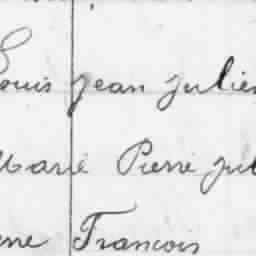 Louis jean julien
Marie Pierre jul
ne Francois